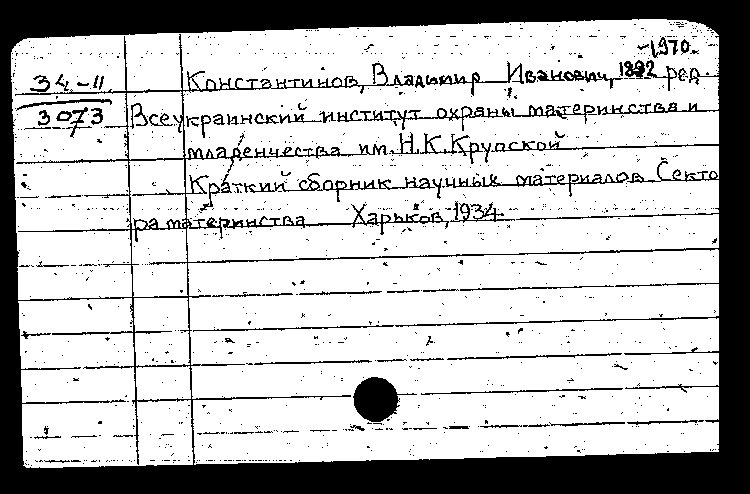 -1970.
34-11 Константинов, Владимир Иванович, 1892 ред.
3073 Всеукраинский институт охраны материнства и
младенчества им. Н.К. Крупской
Краткий сборник научных материалов Секто
ра материнства Харьков, 1934.